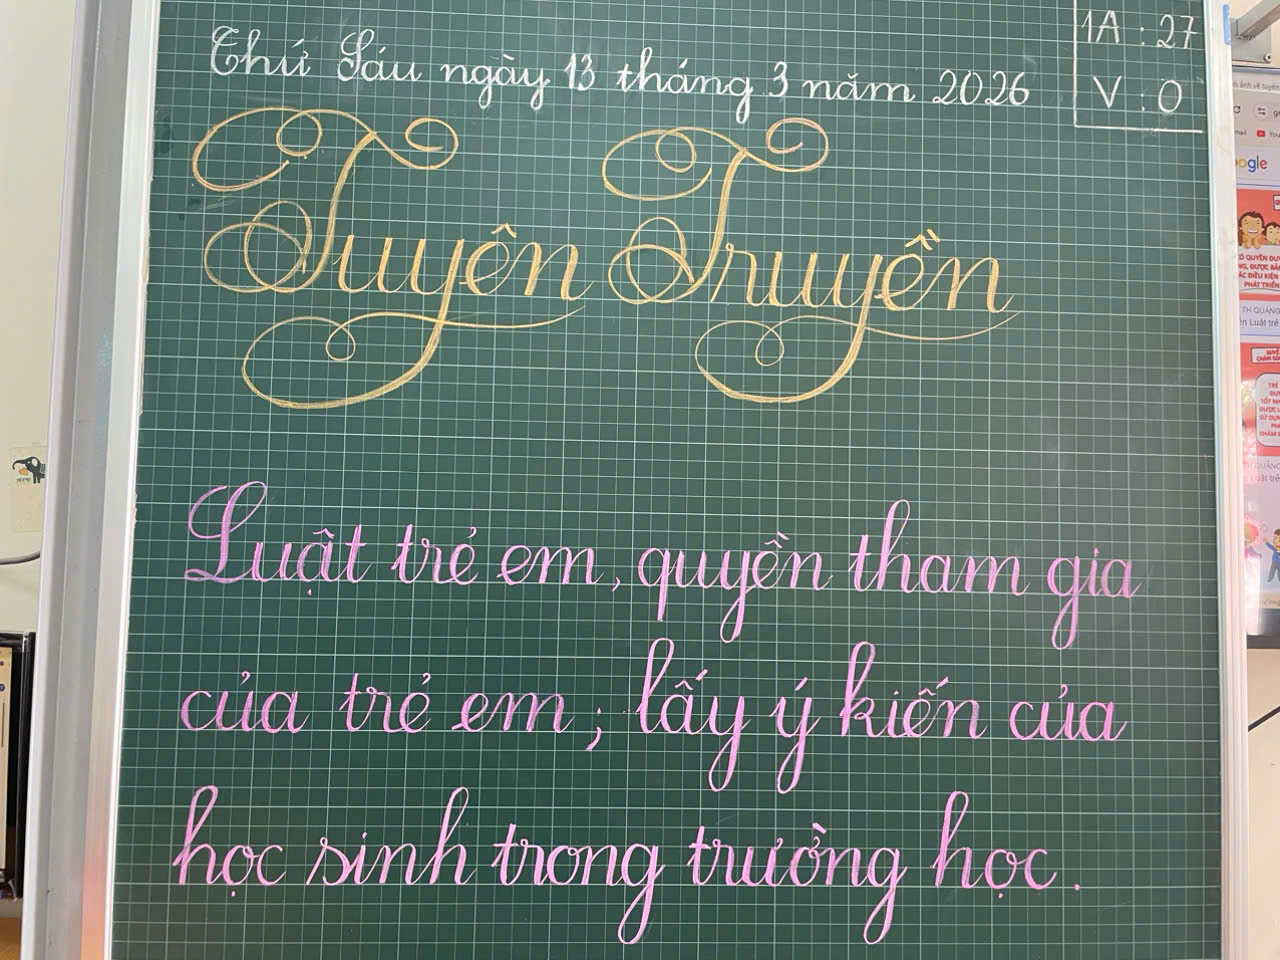 Thứ Sáu ngày 13 tháng 3 năm 2026
1A : 27
V : 0
Tuyên Truyền
Luật trẻ em, quyền tham gia
của trẻ em; lấy ý kiến của
học sinh trong trường học.
ogle
TH QUẢNG
HOME